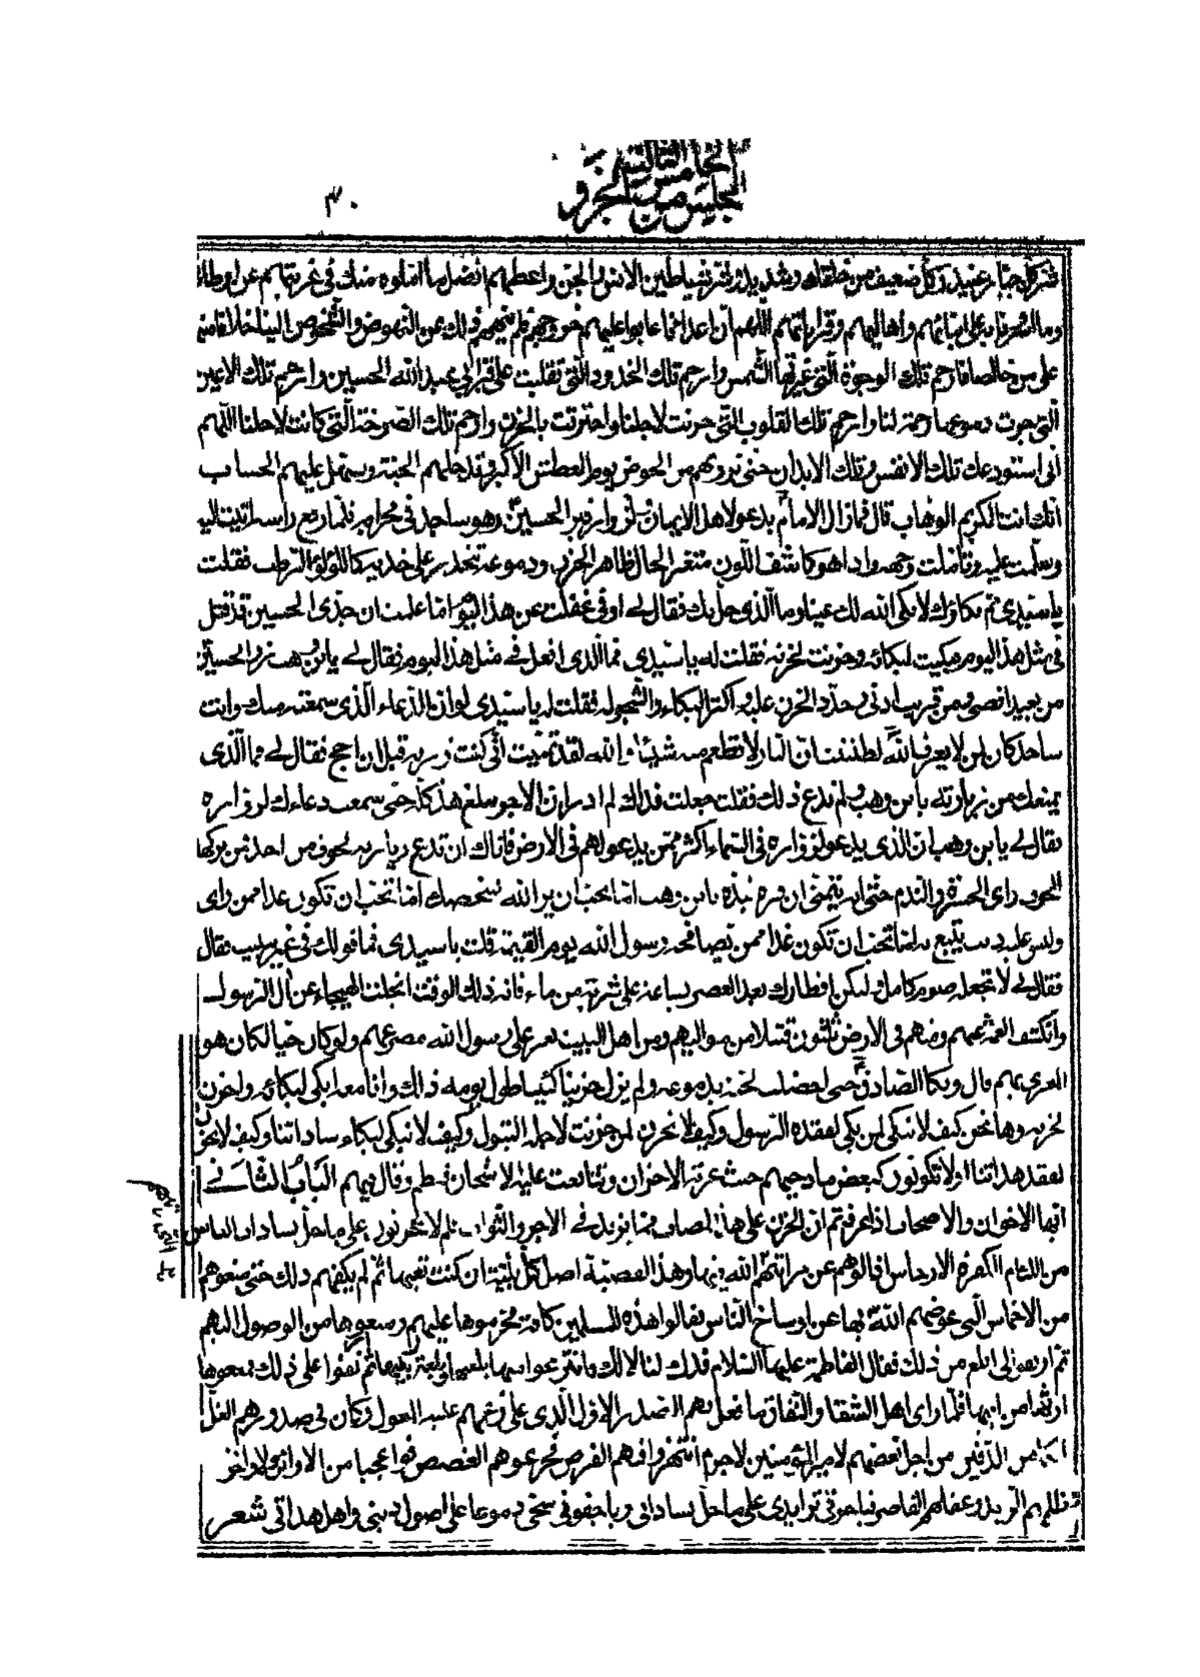 المجلس الخامس من الجزء الثالث
٣٠
شر كل جبار عنيد وكل ضعيف من خلقك وشديد وشر شياطين الانس والجن واعطهم افضل ما املوه منك في غربتهم عن اوطانهم
وما اثرونا به على ابنائهم واهاليهم وقراباتهم اللهم ان اعدائنا عابوا عليهم خروجهم فلم ينههم ذلك عن النهوض والشخوص الينا خلافا منهم
على من خالفنا فارحم تلك الوجوه التي غيرتها الشمس وارحم تلك الخدود التي تقلبت على قبر ابي عبد الله الحسين وارحم تلك الاعين
التي جرت دموعها رحمة لنا وارحم تلك القلوب التي حزنت لاجلنا واحترقت بالحزن وارحم تلك الصرخة التي كانت لاجلنا اللهم
اني استودعك تلك الانفس وتلك الابدان حتى ترويهم من الحوض يوم العطش الاكبر وتدخلهم الجنة وتسهل عليهم الحساب
انك انت الكريم الوهاب قال فما زال الامام يدعو لاهل الايمان ولزوار قبر الحسين وهو ساجد في محرابه فلما رفع راسه اتيت اليه
وسلمت عليه وتاملت وجهه واذا هو كاسف اللون متغير الحال ظاهر الحزن ودموعه تنحدر على خديه كاللؤلؤ الرطب فقلت
يا سيدي مم بكاؤك لا ابكى الله لك عينا وما الذي حل بك فقال لي او في غفلة عن هذا اليوم اما علمت ان جدي الحسين قد قتل
في مثل هذا اليوم فبكيت لبكائه وحزنت لحزنه فقلت له يا سيدي فما الذي افعل في مثل هذا اليوم فقال لي يا ابن وهب زر الحسين
من بعيد اقصى ومن قريب ادنى وجدد الحزن عليه واكثر البكاء والشجو له فقلت له يا سيدي لو ان الدعاء الذي سمعته منك وانت
ساجد كان لمن لا يعرف الله لظننت ان النار لا تطعم منه شيئا والله لقد تمنيت اني كنت زرته قبل ان احج فقال لي فما الذي
يمنعك من زيارته يا ابن وهب ولم تدع ذلك فقلت جعلت فداك لم ادر ان الاجر يبلغ هذا كله حتى سمعت دعاءك لزواره
فقال لي يا ابن وهب ان الذي يدعو لزواره في السماء اكثر ممن يدعو لهم في الارض فاياك ان تدع زيارته لخوف من احد فمن تركها
لخوف راى الحسرة والندم حتى انه يتمنى ان قبره نبذه يا ابن وهب اما تحب ان يرى الله شخصك اما تحب ان تكون غدا ممن راى
وليس عليه ذنب يتبع به اما تحب ان تكون غدا ممن يصافحه رسول الله يوم القيمة قلت يا سيدي فما قولك في غير تبييت فقال
فقال لي لا تجعله صوم كامل وليكن افطارك بعد العصر بساعة على شربة من ماء فانه ذلك الوقت انجلت الهيجاء عن آل الرسول
وانكشف الغمة عنهم ومنهم في الارض ثلثون قتيلا من مواليهم ومن اهل البيت يعز على رسول الله مصرعهم ولو كان حيا لكان هو
المعزى بهم قال وبكا الصادق حتى اخضلت لحيته بدموعه ولم يزل حزينا كئيبا طول يومه ذلك وانا معه ابكي لبكائه واحزن
لحزنه وها نحن كيف لا نبكي لمن بكي لفقده الرسول وكيف لا نحزن لمن حزنت لاجله البتول وكيف لا نبكي لبكاء ساداتنا وكيف لا نحزن
لفقد هداتنا اولا تكونون كبعض مادحيهم حيث عرته الاحزان وتتابعت عليه الاشجان فنظم وقال فيهم الباب الثاني
ايها الاخوان والاصحاب اذا عرفتم ان الحزن على هذا المصاب مما يزيد في الاجر والثواب فلم لا تحزنون على ما حل بسادات الناس
من اللئام الكفرة الارجاس ازالوهم عن مراتبهم الله فيها وهذه المصيبة اصل كل بلية ان كنت تفهمها ثم لم يكفهم ذلك حتى منعوهم
من الاخماس التي عوضهم الله بها عن اوساخ الناس فقالوا هذه للمسلمين كافة فحرموها عليهم ومنعوها من الوصول اليهم
ثم اربعوا الى ابلغ من ذلك فقال لفاطمة عليها السلام فدك لنا لا لك وانتزعوا منها بلغتها وبلغة بنيها ثم بغوا على ذلك بمنعها
ارثها من ابيها فلما راى اهل الشقا والنفاق ما فعل بهم الصدر الاول الذي على زعمهم عليه المعول وكان في صدورهم الغل
الدفين من اجل بغضهم لامير المؤمنين لاجرم انتهزوا فيهم الفرص فجرعوهم الغصص فوا عجبا من الاوائل والاواخر
ظلمهم الزيد وعقلهم القاصر فيا حرقتي تزايدي على ما حل بساداتي ويا جفوني سحي دموعا على اصول ديني واهل هداتي شعر